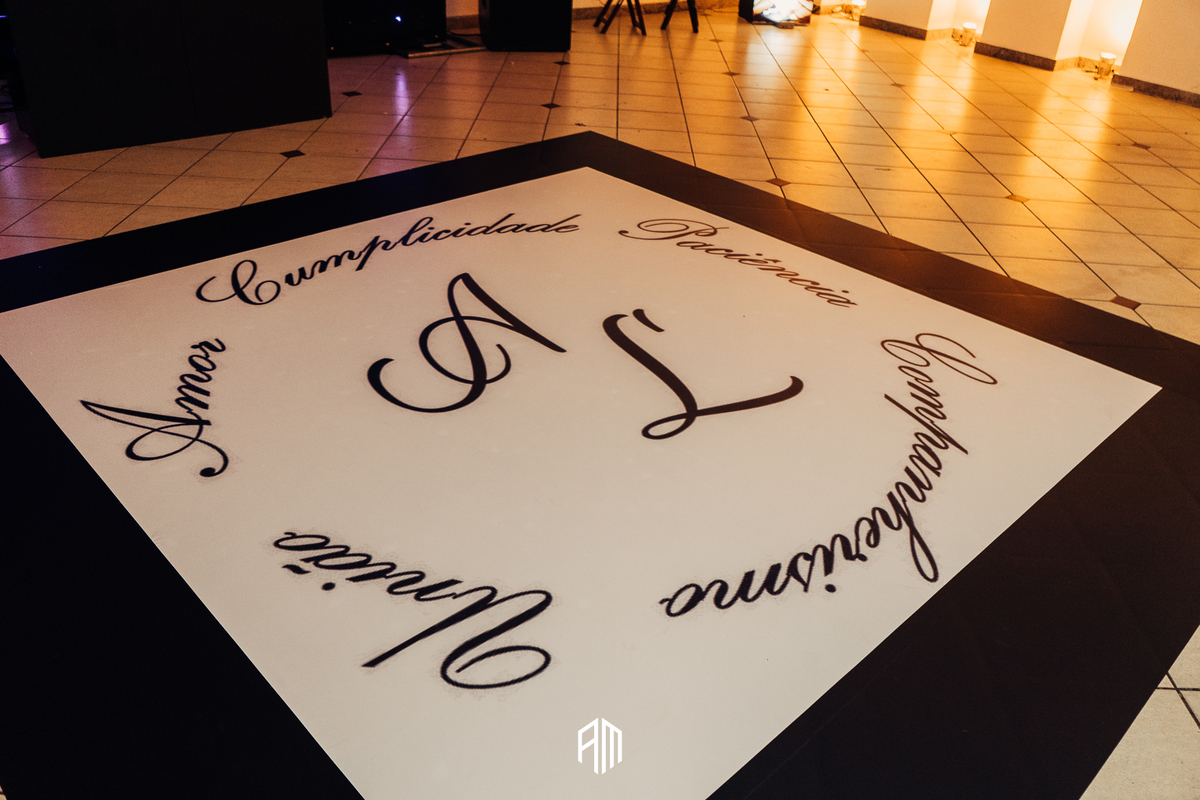 Amor
Cumplicidade
Paciência
Companheirismo
União
A L
AM